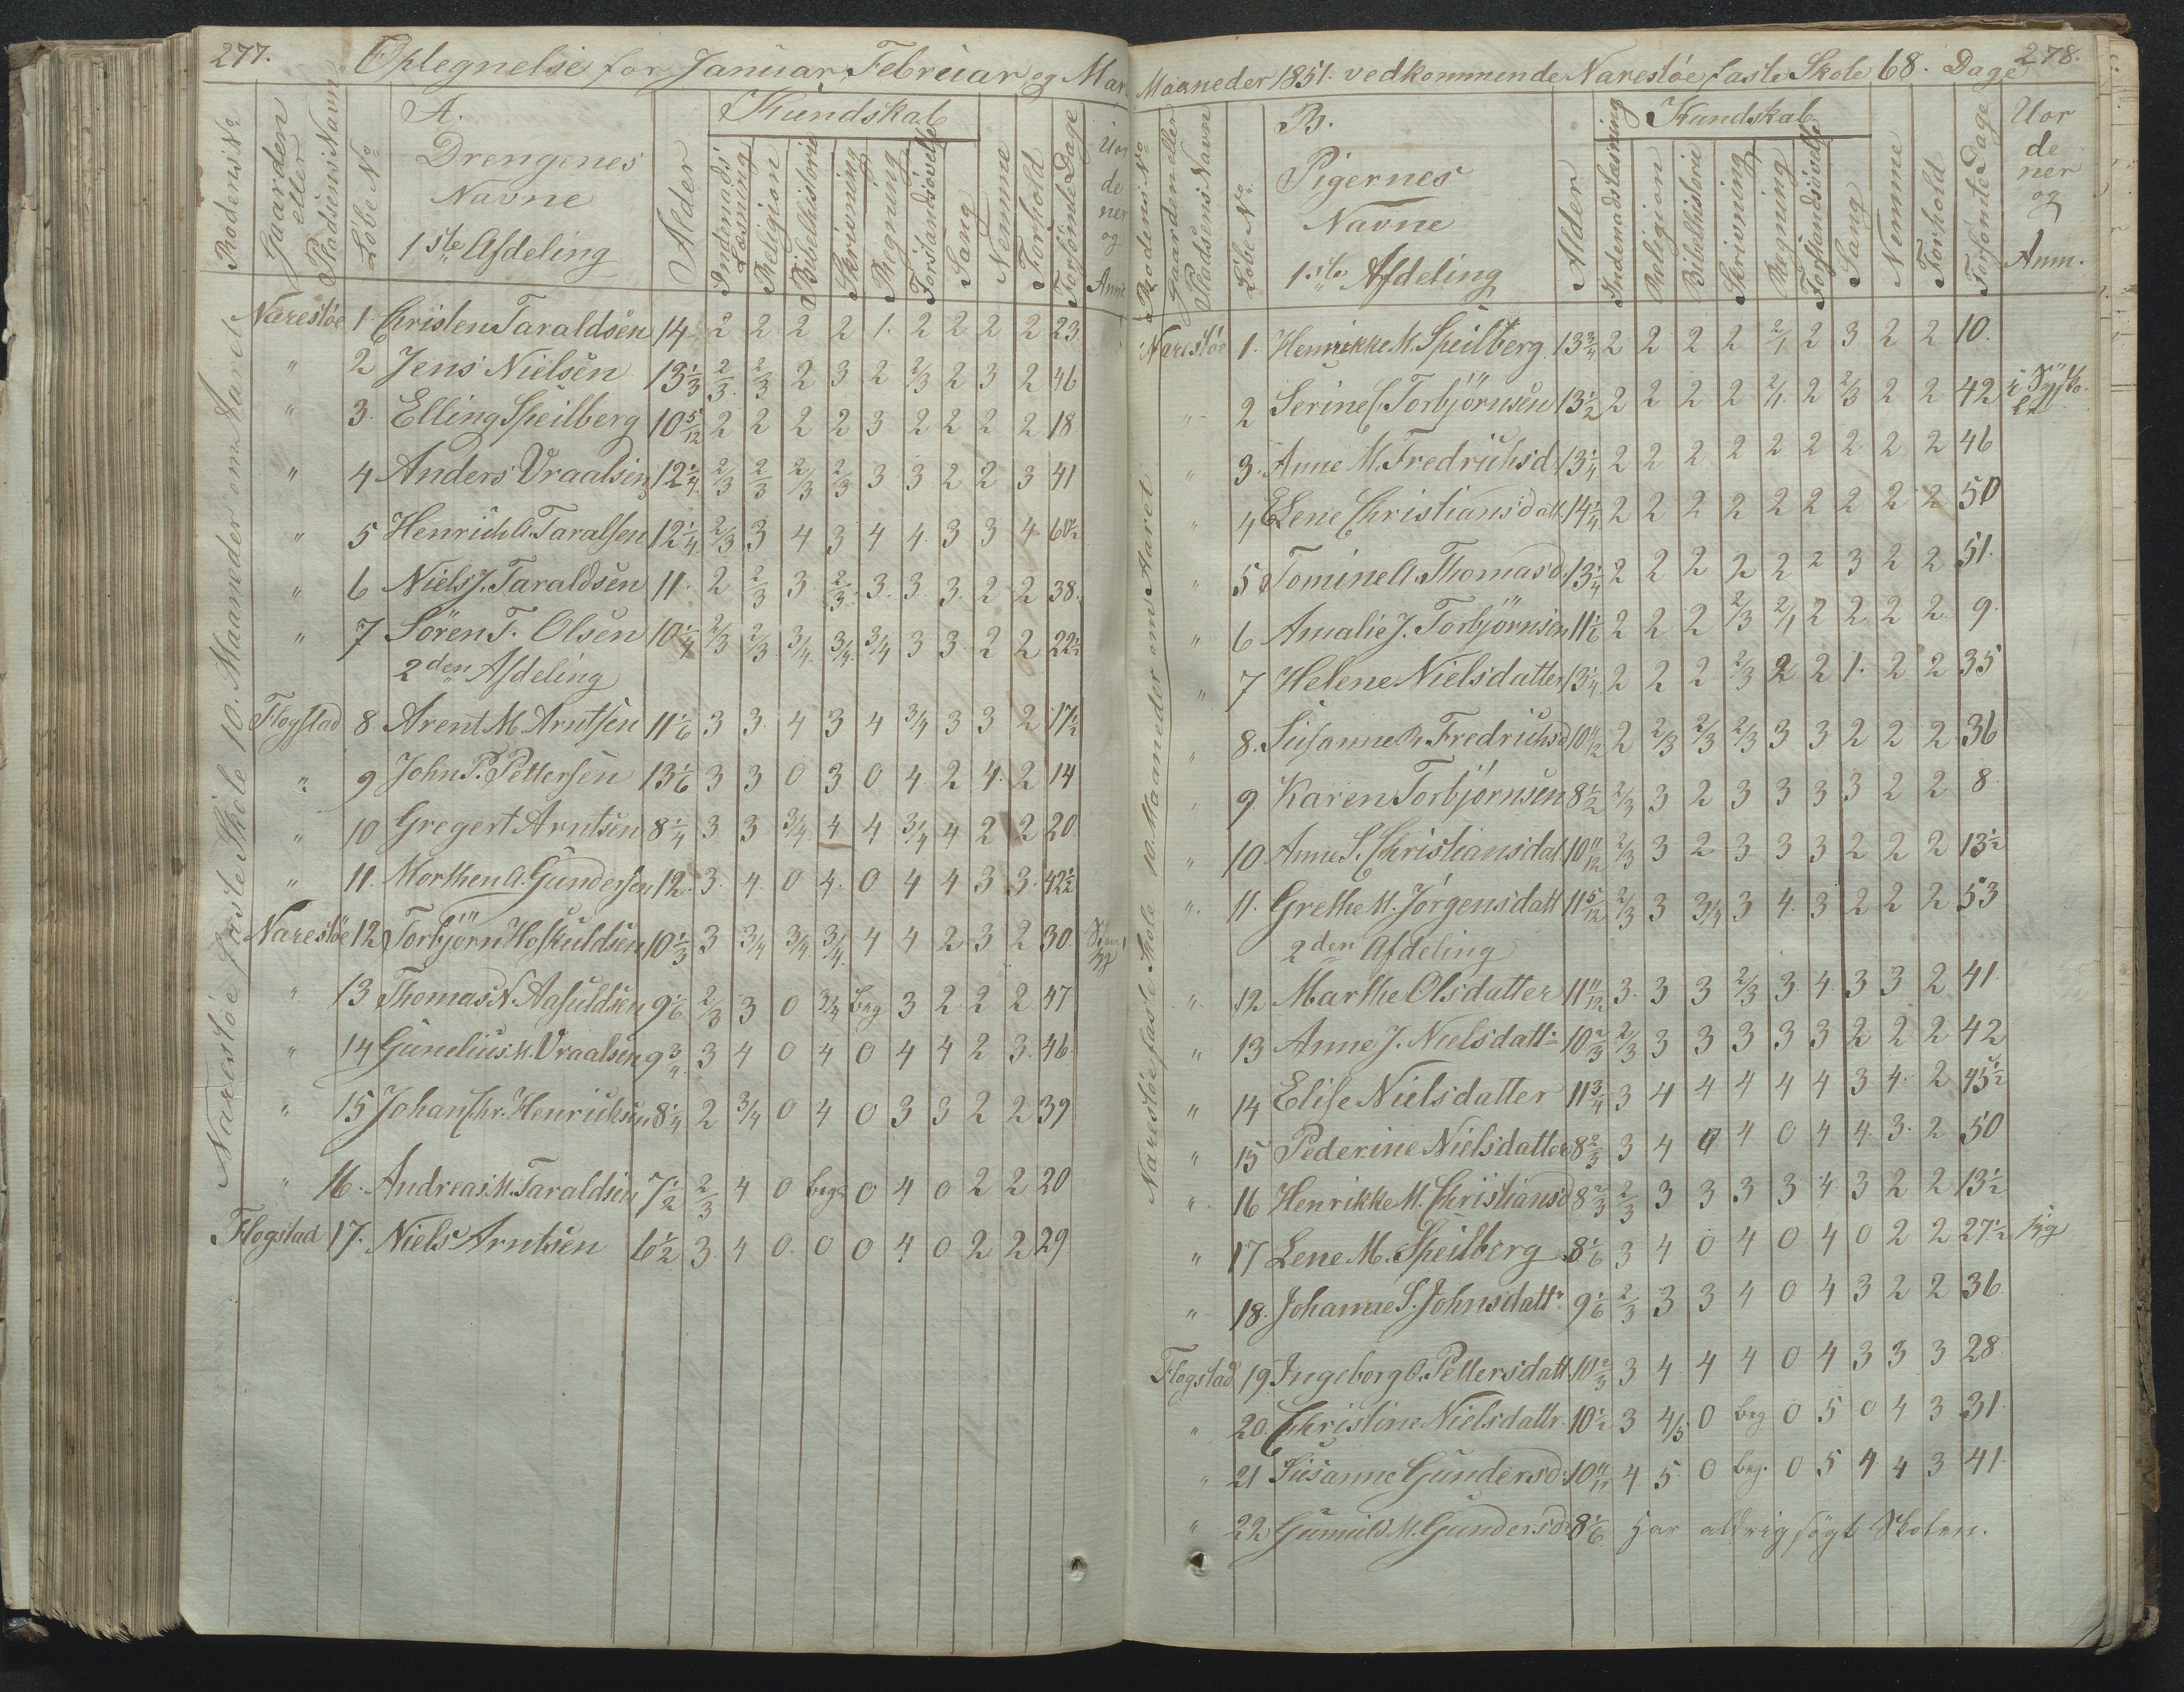 277.
Optegnelse for Januar, Februar og Mar
Rodens No
Gaarden eller Pladsens Navn
Løbe No
A.
Drengenes
Navne
1ste Afdeling
Alder
Kundskab
Indenads Læsning
Religion
Bibelhistorie
Skrivning
Regning
Forstandsøvelse
Sang
Nemme
Forhold
Forsømte Dage
Uor
de
ner
og
Anm
Narestøe faste Skole 10. Maaneder om Aaret
Narestöe 1. Christen Taraldsen 14 2 2 2 2 1. 2 2 2 2 23
" 2 Jens Nielsen 13 1/3 2/3 2/3 2 3 2 2/3 2 3 2 46
" 3. Elling Speilberg 10 5/12 2 2 2 2 3 2 2 2 2 18
" 4 Anders Vraalsen 12 1/4 2/3 2/3 2/3 2/3 3 3 2 2 3 41
" 5 Henrich A. Taralsen 12 1/4 2/3 3 4 3 4 4. 3 3 4 60 1/2
" 6 Niels J. Taraldsen 11. 2 2/3 3 2/3 3. 3. 3. 2 2 38.
" 7 Sören T. Olsen 10 1/4 2/3 2/3 3/4 3/4 3/4 3 3. 2 2 22 1/2
2den Afdeling
Flogstad 8 Arent M. Arntsen 11 1/6 3 3. 4 3 4 3/4 3 3 2 17 1/2
" 9 John P. Pettersen 13 1/6 3 3 0 3 0 4 2 4. 2 14
" 10 Gregert Arntsen 8 1/4 3 3 3/4 4 4 3/4 4 2 2 20
" 11. Morthen A. Gundersen 12. 3. 4. 0 4. 0 4 4 3 3. 42 1/2
Narestöe 12 Torbjörn Hofkuldsen 10 1/3 3 3/4 3/4 3/4 4 4 2 3 2 30.
" 13 Thomas N. Aasuldsen 9 1/6 2/3 3 0 3/4 beg 3 2 2 2 47
" 14 Gunelius M. Vraalsen 9 3/4 3 4 0 4 0 4 4 2 3. 46
" 15 Johan Chr. Henrichsen 8 1/4 2 3/4 0 4 0 3 3 2 2 39
" 16. Andreas M. Taraldsen 7 1/2 2/3 4 0 beg 0 4 0 2 2 20
Flogstad 17. Niels Arntsen 6 1/2 3. 4 0. 0 0 4 0 2 2 29
278.
Maaneder 1851. vedkommende Narestöe faste Skole 68. Dage
Rodens No
Gaarden eller Pladsens Navn
Löbe No
B.
Pigernes
Navne
1ste Afdeling
Alder
Kundskab
Indenadslæsning
Religion
Bibelhistorie
Skrivning
Regning
Forstandsövelse
Sang
Nemme
Forhold
Forsömte Dage
Uor
de
ner
og
Anm.
Narestöe faste Skole 10. Maaneder om Aaret
Narestöe 1. Henrikke M. Speilberg 13 3/4 2 2 2 2 2/1 2 3 2 2 10.
" 2 Serine C. Torbjörnsen 13 1/2 2 2 2 2 2/1. 2 2/3 2 2 42
" 3. Anne M. Fredrichsd. 13 1/4 2 2 2 2 2 2 2 2 2 46
" 4 Lene Christiansdatt. 14 1/4 2 2 2 2 2 2 2 2 2 50
" 5 Tomine A. Thomasd. 13 1/4 2 2 2 2 2 2 3 2 2 51.
" 6 Amalie J. Torbjörnsen 11 1/6 2 2 2 2/3 2/1 2 2 2 2 9.
" 7 Helene Nielsdatter 13 1/4 2 2 2 2/3 2 2 1. 2 2 35
" 8. Susanne R. Fredrichsd 10 11/12 2 2/3 2/3 2/3 3 3 2 2 2 36
" 9 Karen Torbjörnsen 8 1/2 2/3 3 2 3 3 3 3 2 2 8.
" 10 Anne S. Christiansdat 10 11/12 2/3 3 2 3 3 3 2 2 2 13 1/2
" 11. Grethe M. Jörgensdatt 11 5/12 2/3 3 3/4 3 4. 3 2 2 2 53
2den Afdeling
" 12 Marthe Olsdatter 11 11/12 3. 3 3 2/3 3. 4 3 3 2 41.
" 13 Anne J. Nielsdattr 10 2/3 2/3 3 3 3 3 3 2 2 2 42
" 14 Elise Nielsdatter 11 3/4 3 4 4 4 4 4 3 4. 2 45 1/2
" 15 Pederine Nielsdatter 8 2/3 3 4 0 4 0 4 4. 3. 2 50
" 16 Henrikke M. Christiansd 8 2/3 2/3 3 3 3 3 4. 3 2 2 13 1/2
" 17 Lene M. Speilberg 8 1/6 3 4 0 4 0 4 0 2 2 27 1/2 syg
" 18. Johanne S. Johnsdattr 9 1/6 2/3 3 3 4 0 4 3 2 2 36.
Flogstad 19 Ingeborg O. Pettersdatt 10 2/3 3 4 4 4 0 4 3 3 3 28
" 20. Christine Nielsdattr. 10 1/2 3 4/5 0 beg 0 5 0 4 3 31.
" 21 Susanne Gundersd. 10 11/12 4 5 0 beg. 0 5 4 4 3 41.
" 22 Gunuld M. Gundersd 8 1/6 har aldrig sögt Skolen.